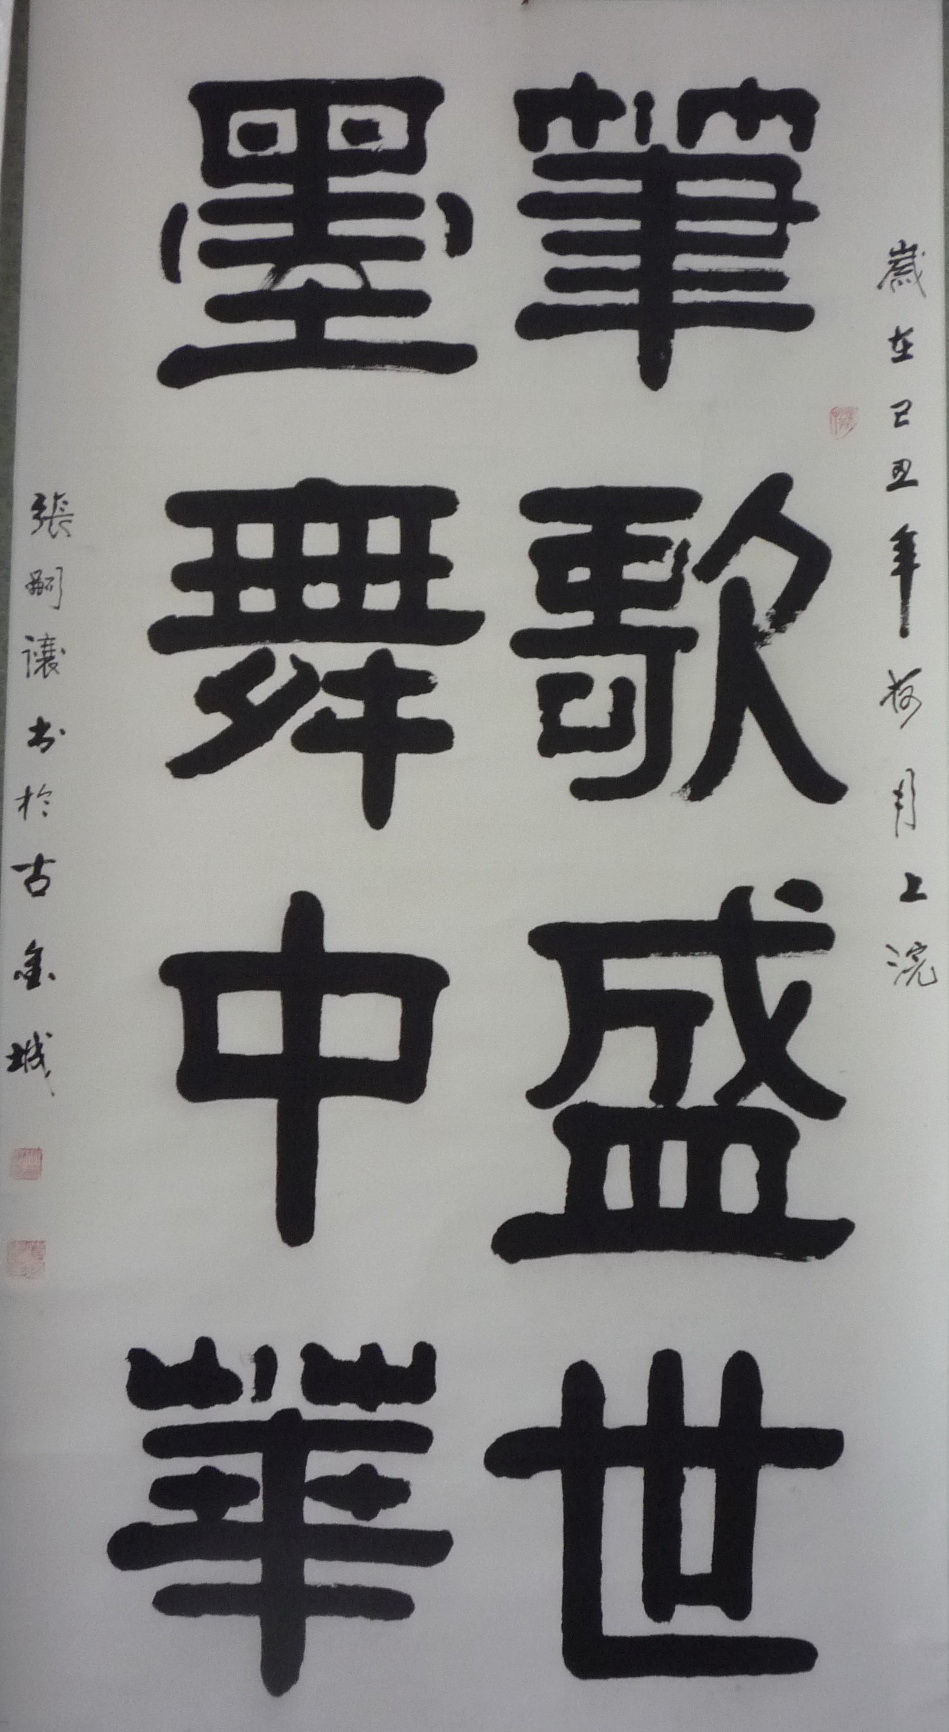 歲在己丑年梅月上浣
筆歌盛世
墨舞中華
張嗣讓書於古金城